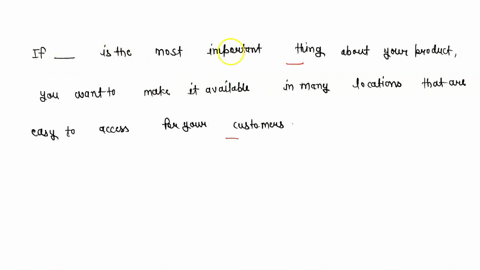 If ___ is the most important thing about your product,
you want to make it available in many locations that are
easy to access for your customers.